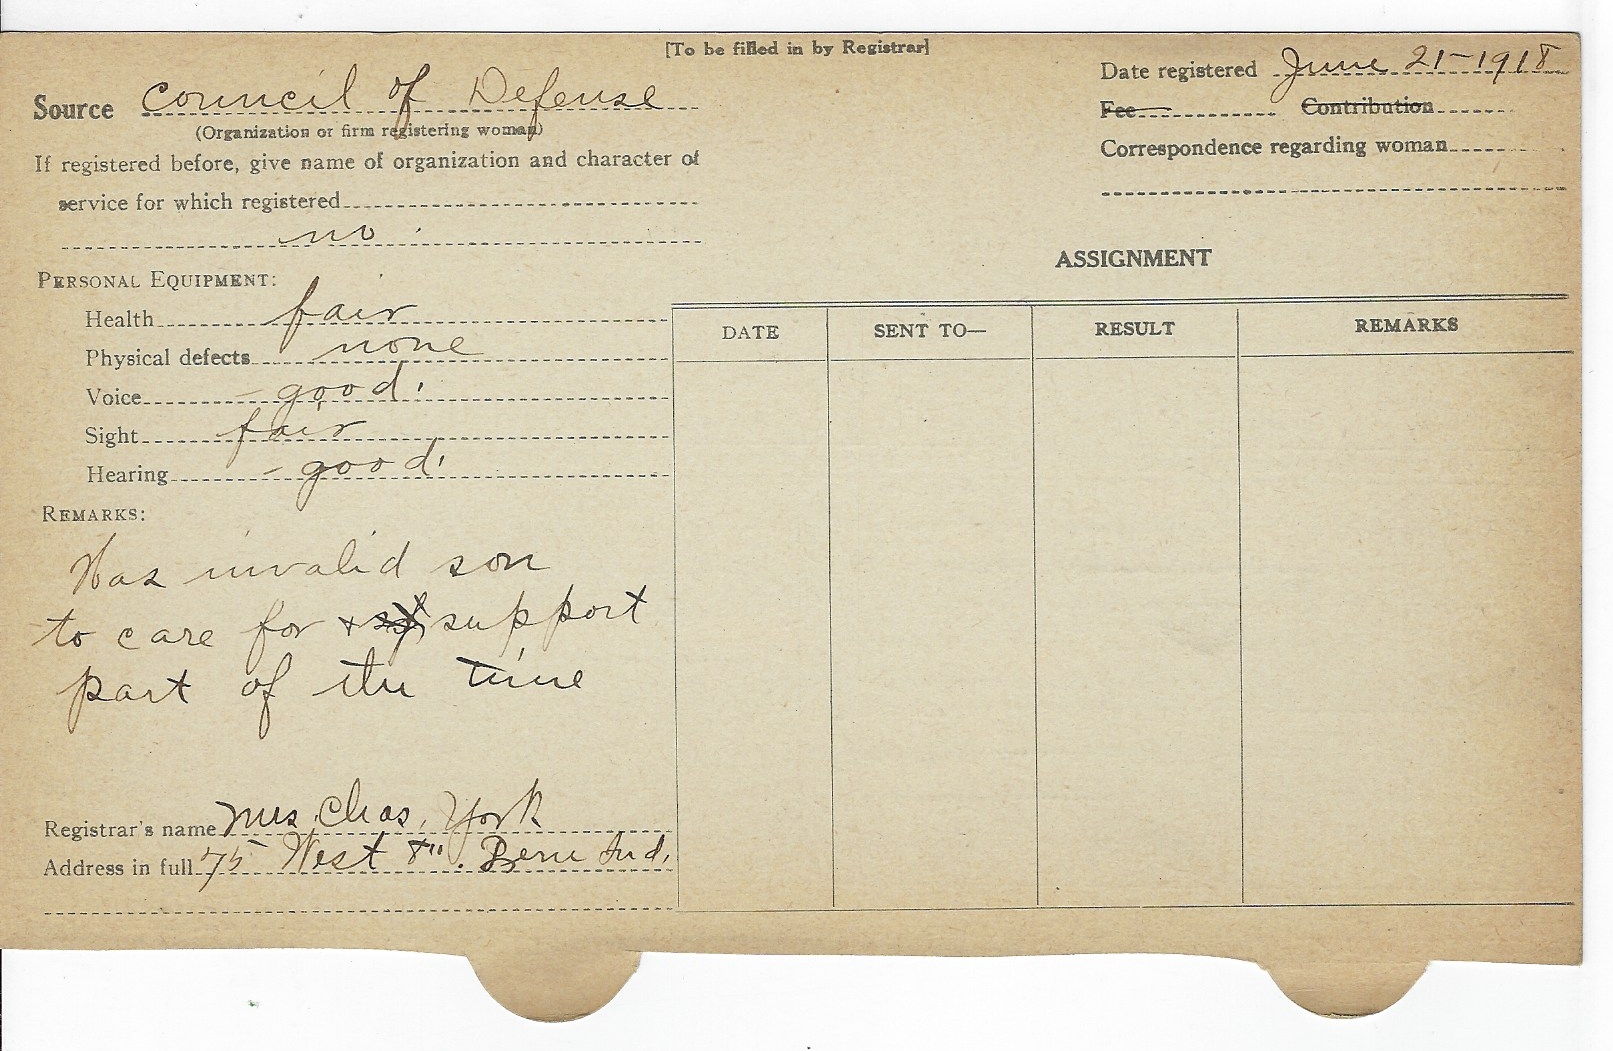 [To be filled in by Registrar]
Source Council of Defense
(Organization or firm registering woman)
If registered before, give name of organization and character of
service for which registered
no
Date registered June 21-1918
Fee Contribution
Correspondence regarding woman
PERSONAL EQUIPMENT:
Health fair
Physical defects none
Voice good
Sight fair
Hearing good
REMARKS:
Has invalid son
to care for + support
part of the time
Registrar's name Mrs. Chas. York
Address in full 75 West 8" . Peru Ind.
ASSIGNMENT
DATE SENT TO— RESULT REMARKS